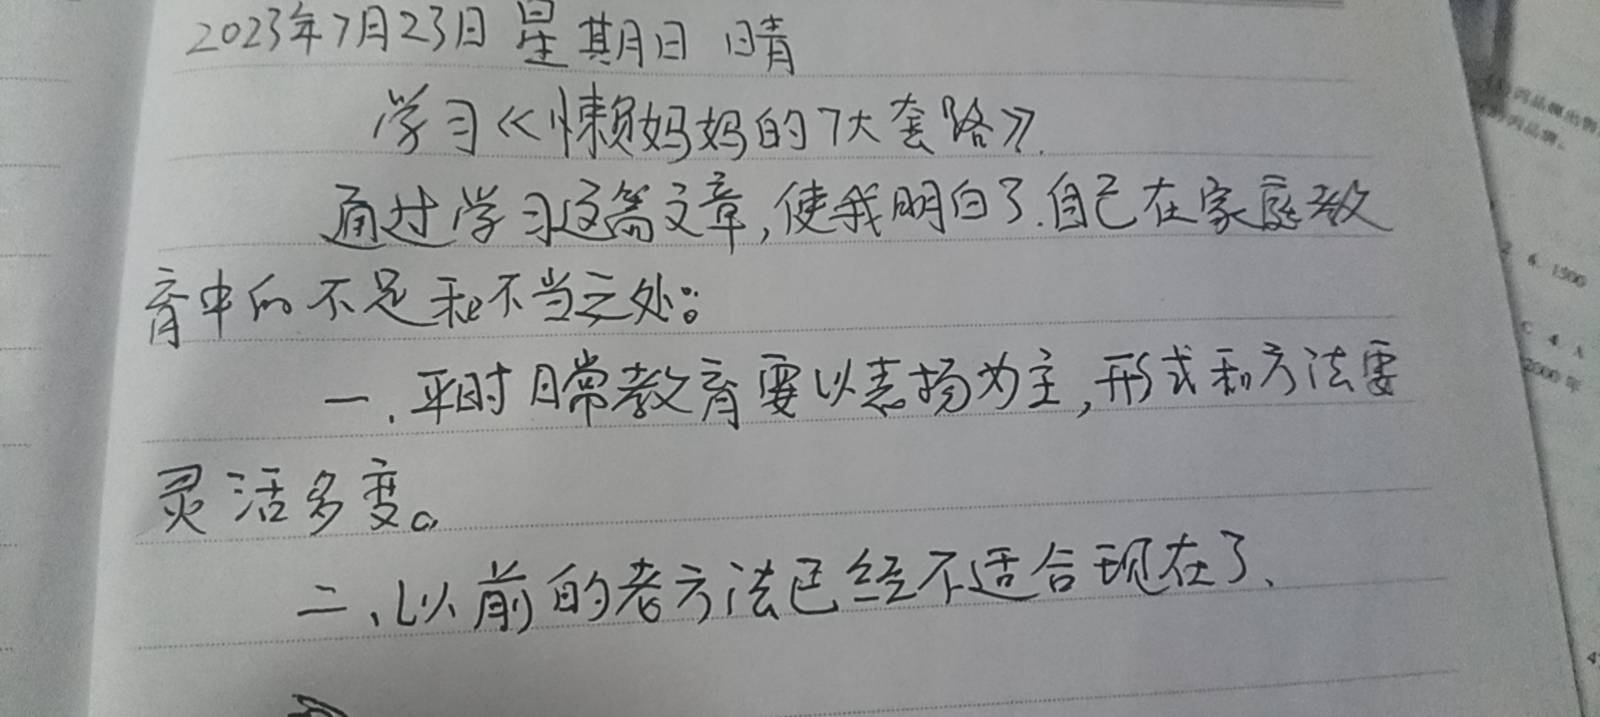 2023年7月23日 星期日 晴
学习《懒妈妈的7大套路》.
通过学习这篇文章,使我明白了.自己在家庭教
育中的不足和不当之处:
一.平时日常教育要以表扬为主,形式和方法要
灵活多变。
二、以前的老方法已经不适合现在了、
2 6 1500
C 4 A
2000年